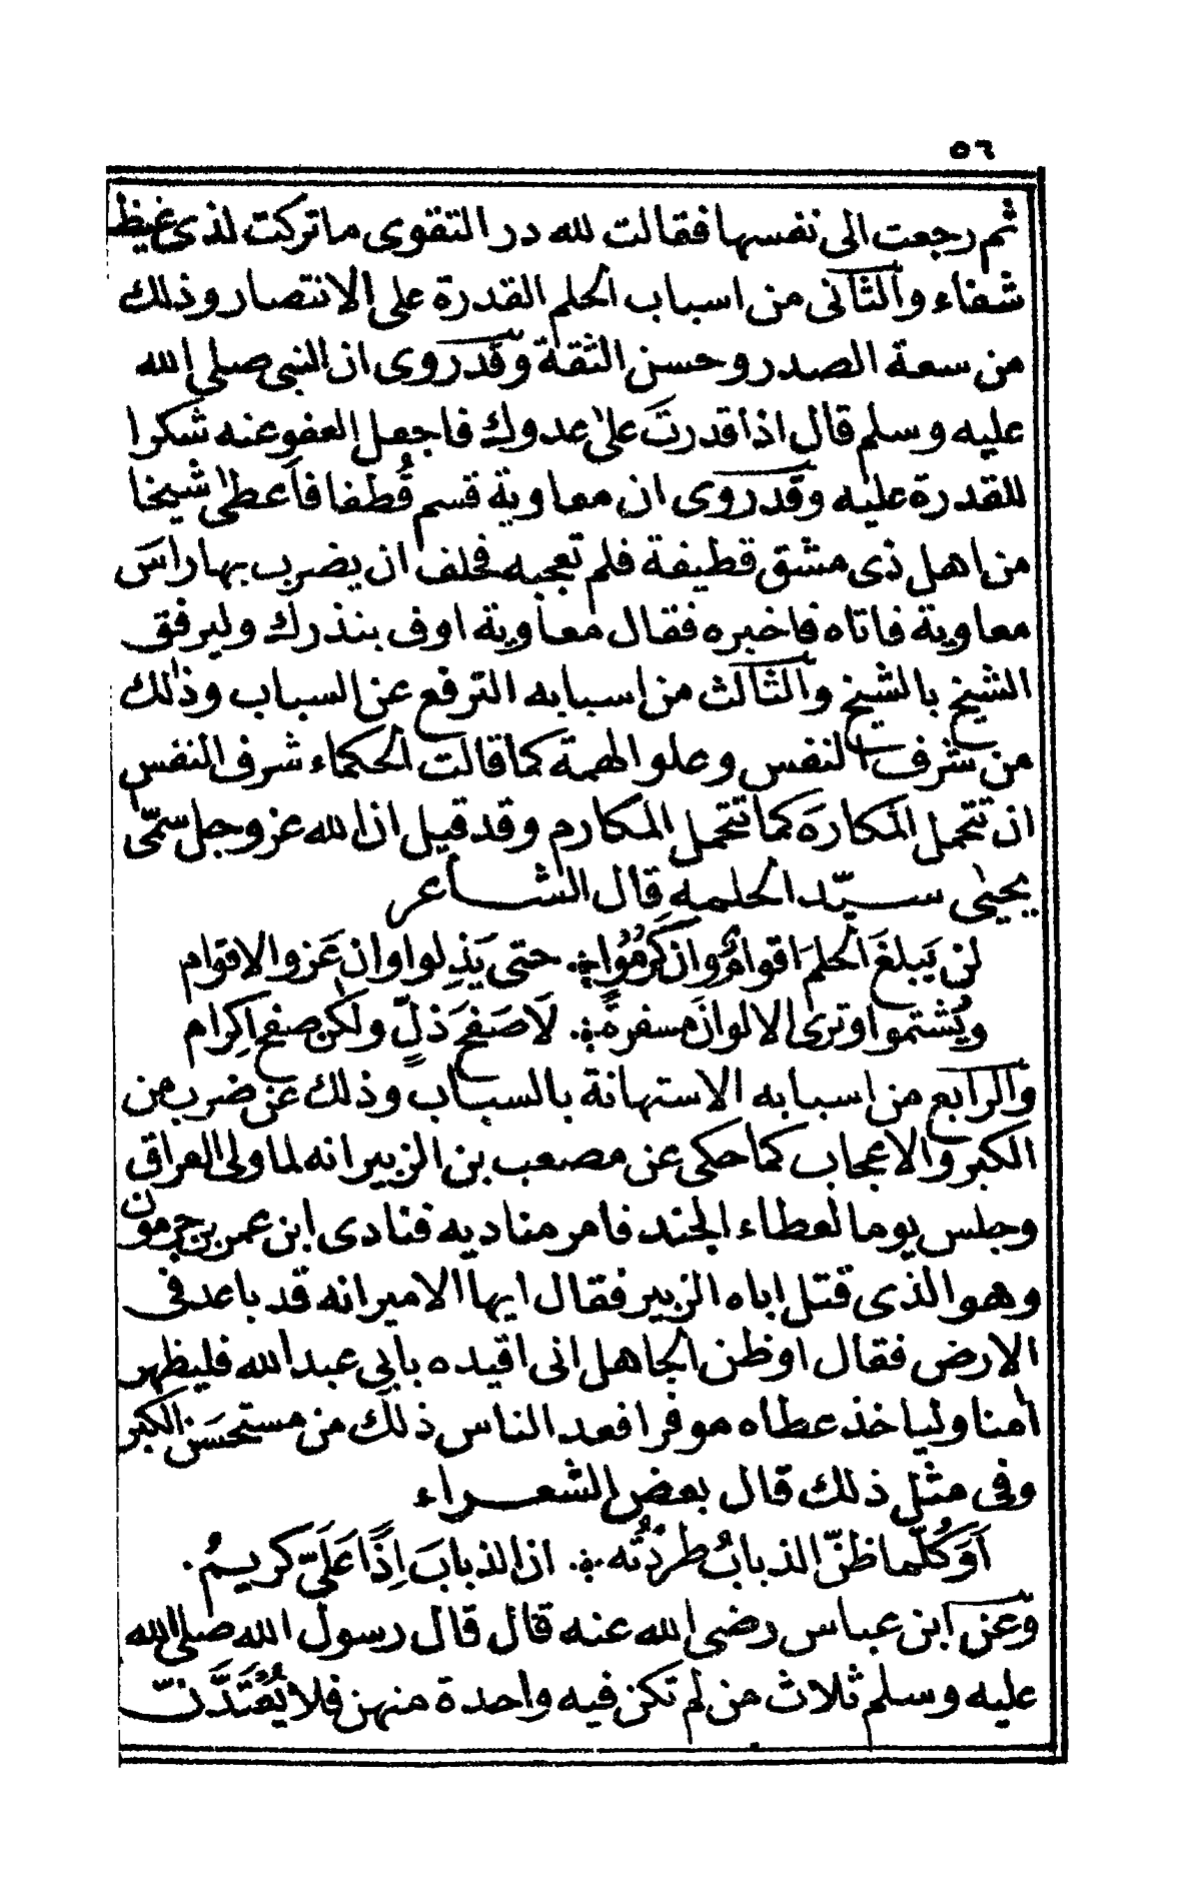 ٥٦
ثم رجعت الى نفسها فقالت لله در التقوى ما تركت لذى غيظ
شفاء والثانى من اسباب الحلم القدرة على الانتصار وذلك
من سعة الصدر وحسن الثقة وقد روى ان النبى صلى الله
عليه وسلم قال اذا قدرتَ على عدوك فاجعل العفو عنه شكرا
للقدرة عليه وقد روى ان معاوية قسم قُطفا فاَعطى شيخا
من اهل ذى مشق قطيفة فلم تعجبه فحلف ان يضرب بها راسَ
معاوية فاتاه فاخبره فقال معاوية اوف بنذرك وليرفق
الشيخ بالشيخ والثالث من اسبابه الترفع عن السباب وذلك
من شرف النفس وعلو الهمة كما قالت الحكماء شرف النفس
ان تتحمل المكارهَ كما تتحمل المكارم وقد قيل ان الله عز وجل سمّى
يحيى سيّد الحلمه قال الشاعر
لن يَبلغَ الحلمَ اقوامٌ وان كَرُمُوا ؞ حتى يَذِلوا وان عَزوا لاقوام
ويُشتموا وترى الالوانَ مسفرةً ؞ لَا صَفحَ ذلٍّ ولكن صفح اِكرام
والرابع من اسبابه الاستهانة بالسباب وذلك عن ضرب من
الكبر والاعجاب كما حكى عن مصعب بن الزبير انه لما ولى العراق
وجلس يوما لعطاء الجند فامر مناديه فنادى ابن عمر بن جرمون
وهو الذى قتل اباه الزبير فقال ايها الامير انه قد باعد فى
الارض فقال اوظن الجاهل انى اقيده بابى عبد الله فليظهر
اٰمنا ولياخذ عطاه موفرا فعد الناس ذلك من مستحسَن الكبر
وفى مثل ذلك قال بعض الشعراء
اَوَكُلّما ظنّ الذبابُ طردتُه ؞ ان الذبابَ اِذًا عَلَىّ كريمُ
وعن ابن عباس رضى الله عنه قال قال رسول الله صلى الله
عليه وسلم ثلاث من لم تكن فيه واحدة منهن فلا يُعْتَدَّنّ